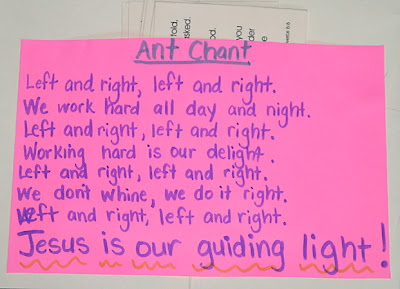 told,
asked.
od.
you
der
e
Ant Chant
Left and right, left and right.
We work hard all day and night.
Left and right, left and right.
Working hard is our delight.
Left and right, left and right.
We don't whine, we do it right.
Left and right, left and right.
Jesus is our guiding light!